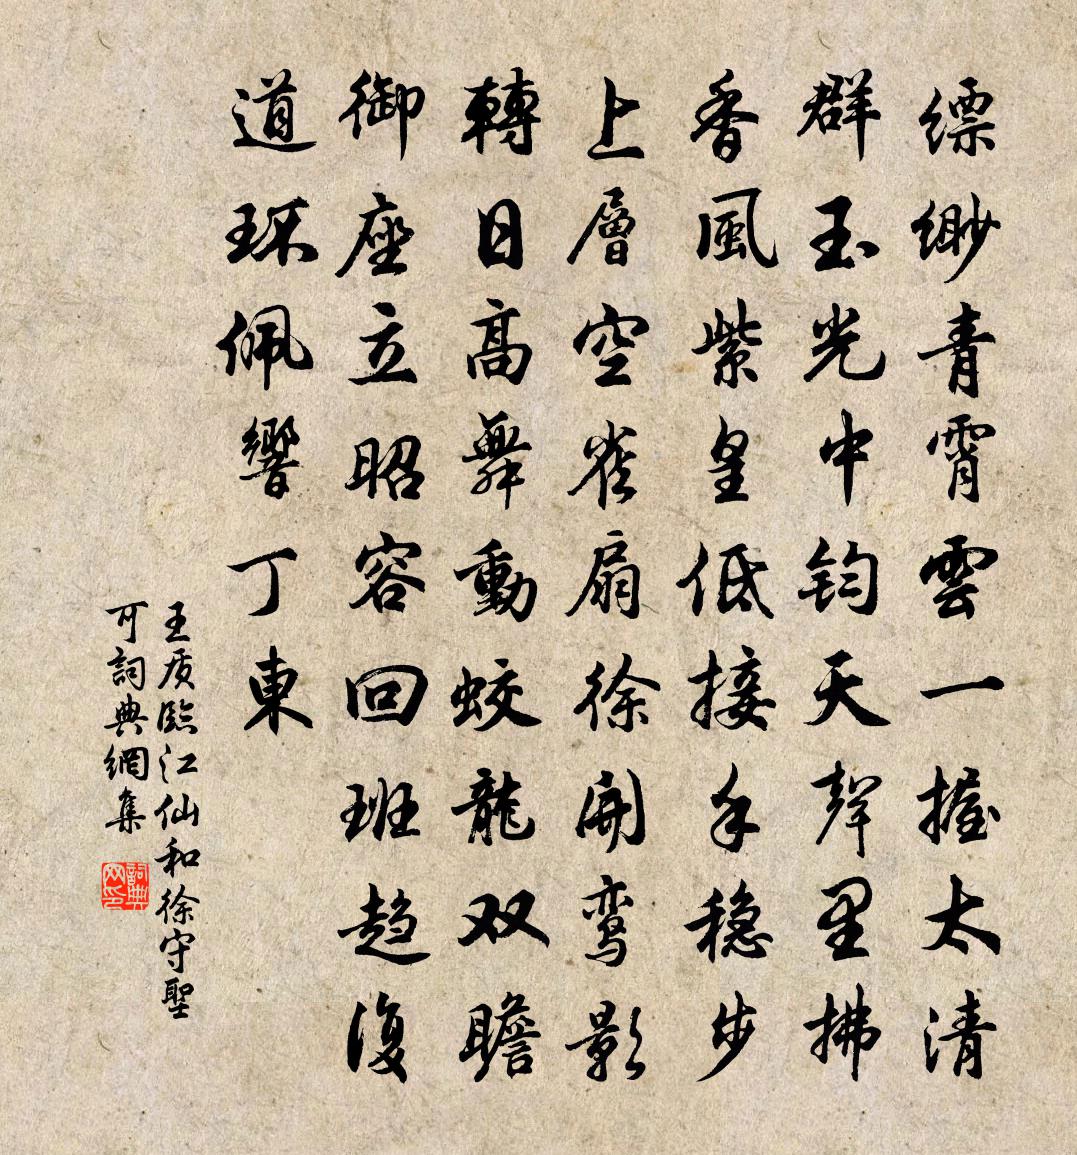 缥缈青霄雲一握太清
群玉光中钧天聲里拂
香風紫皇低接手穏步
上層空雀扇徐開鸾影
轉日高舞動蛟龍双瞻
御座立昭容回班趋復
道环佩響丁東
王质臨江仙和徐守聖
可詞典網集
詞典网印